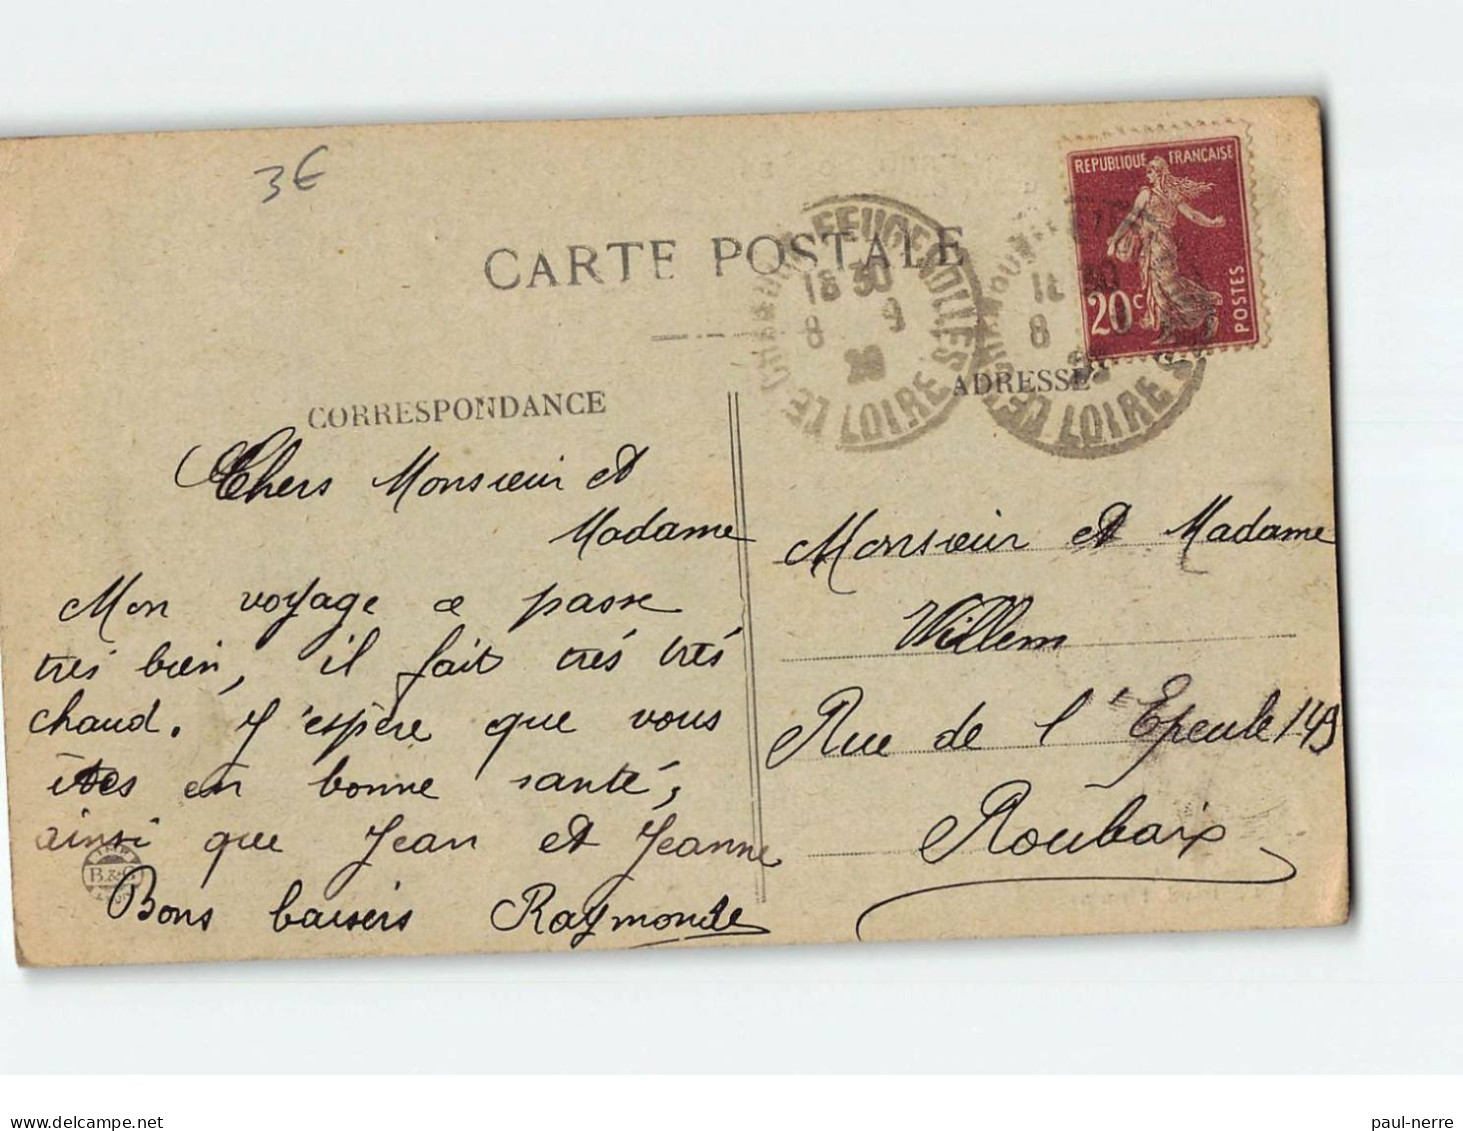 3€
CARTE POSTALE
REPUBLIQUE FRANÇAISE
20c
POSTES
LE CHAMBON FEUGEROLLES
18 30
8 9
LOIRE
8
LOIRE
CORRESPONDANCE
ADRESSE
Chers Monsieur et
Madame
Mon voyage ce passe
très bien, il fait très très
chaud. J'espère que vous
êtes en bonne santé,
ainsi que Jean et Jeanne
Bons baisers Raymonde
B.&G
Monsieur et Madame
Willem
Rue de l'Epeule 149
Roubaix
delcampe.net
paul-nerre